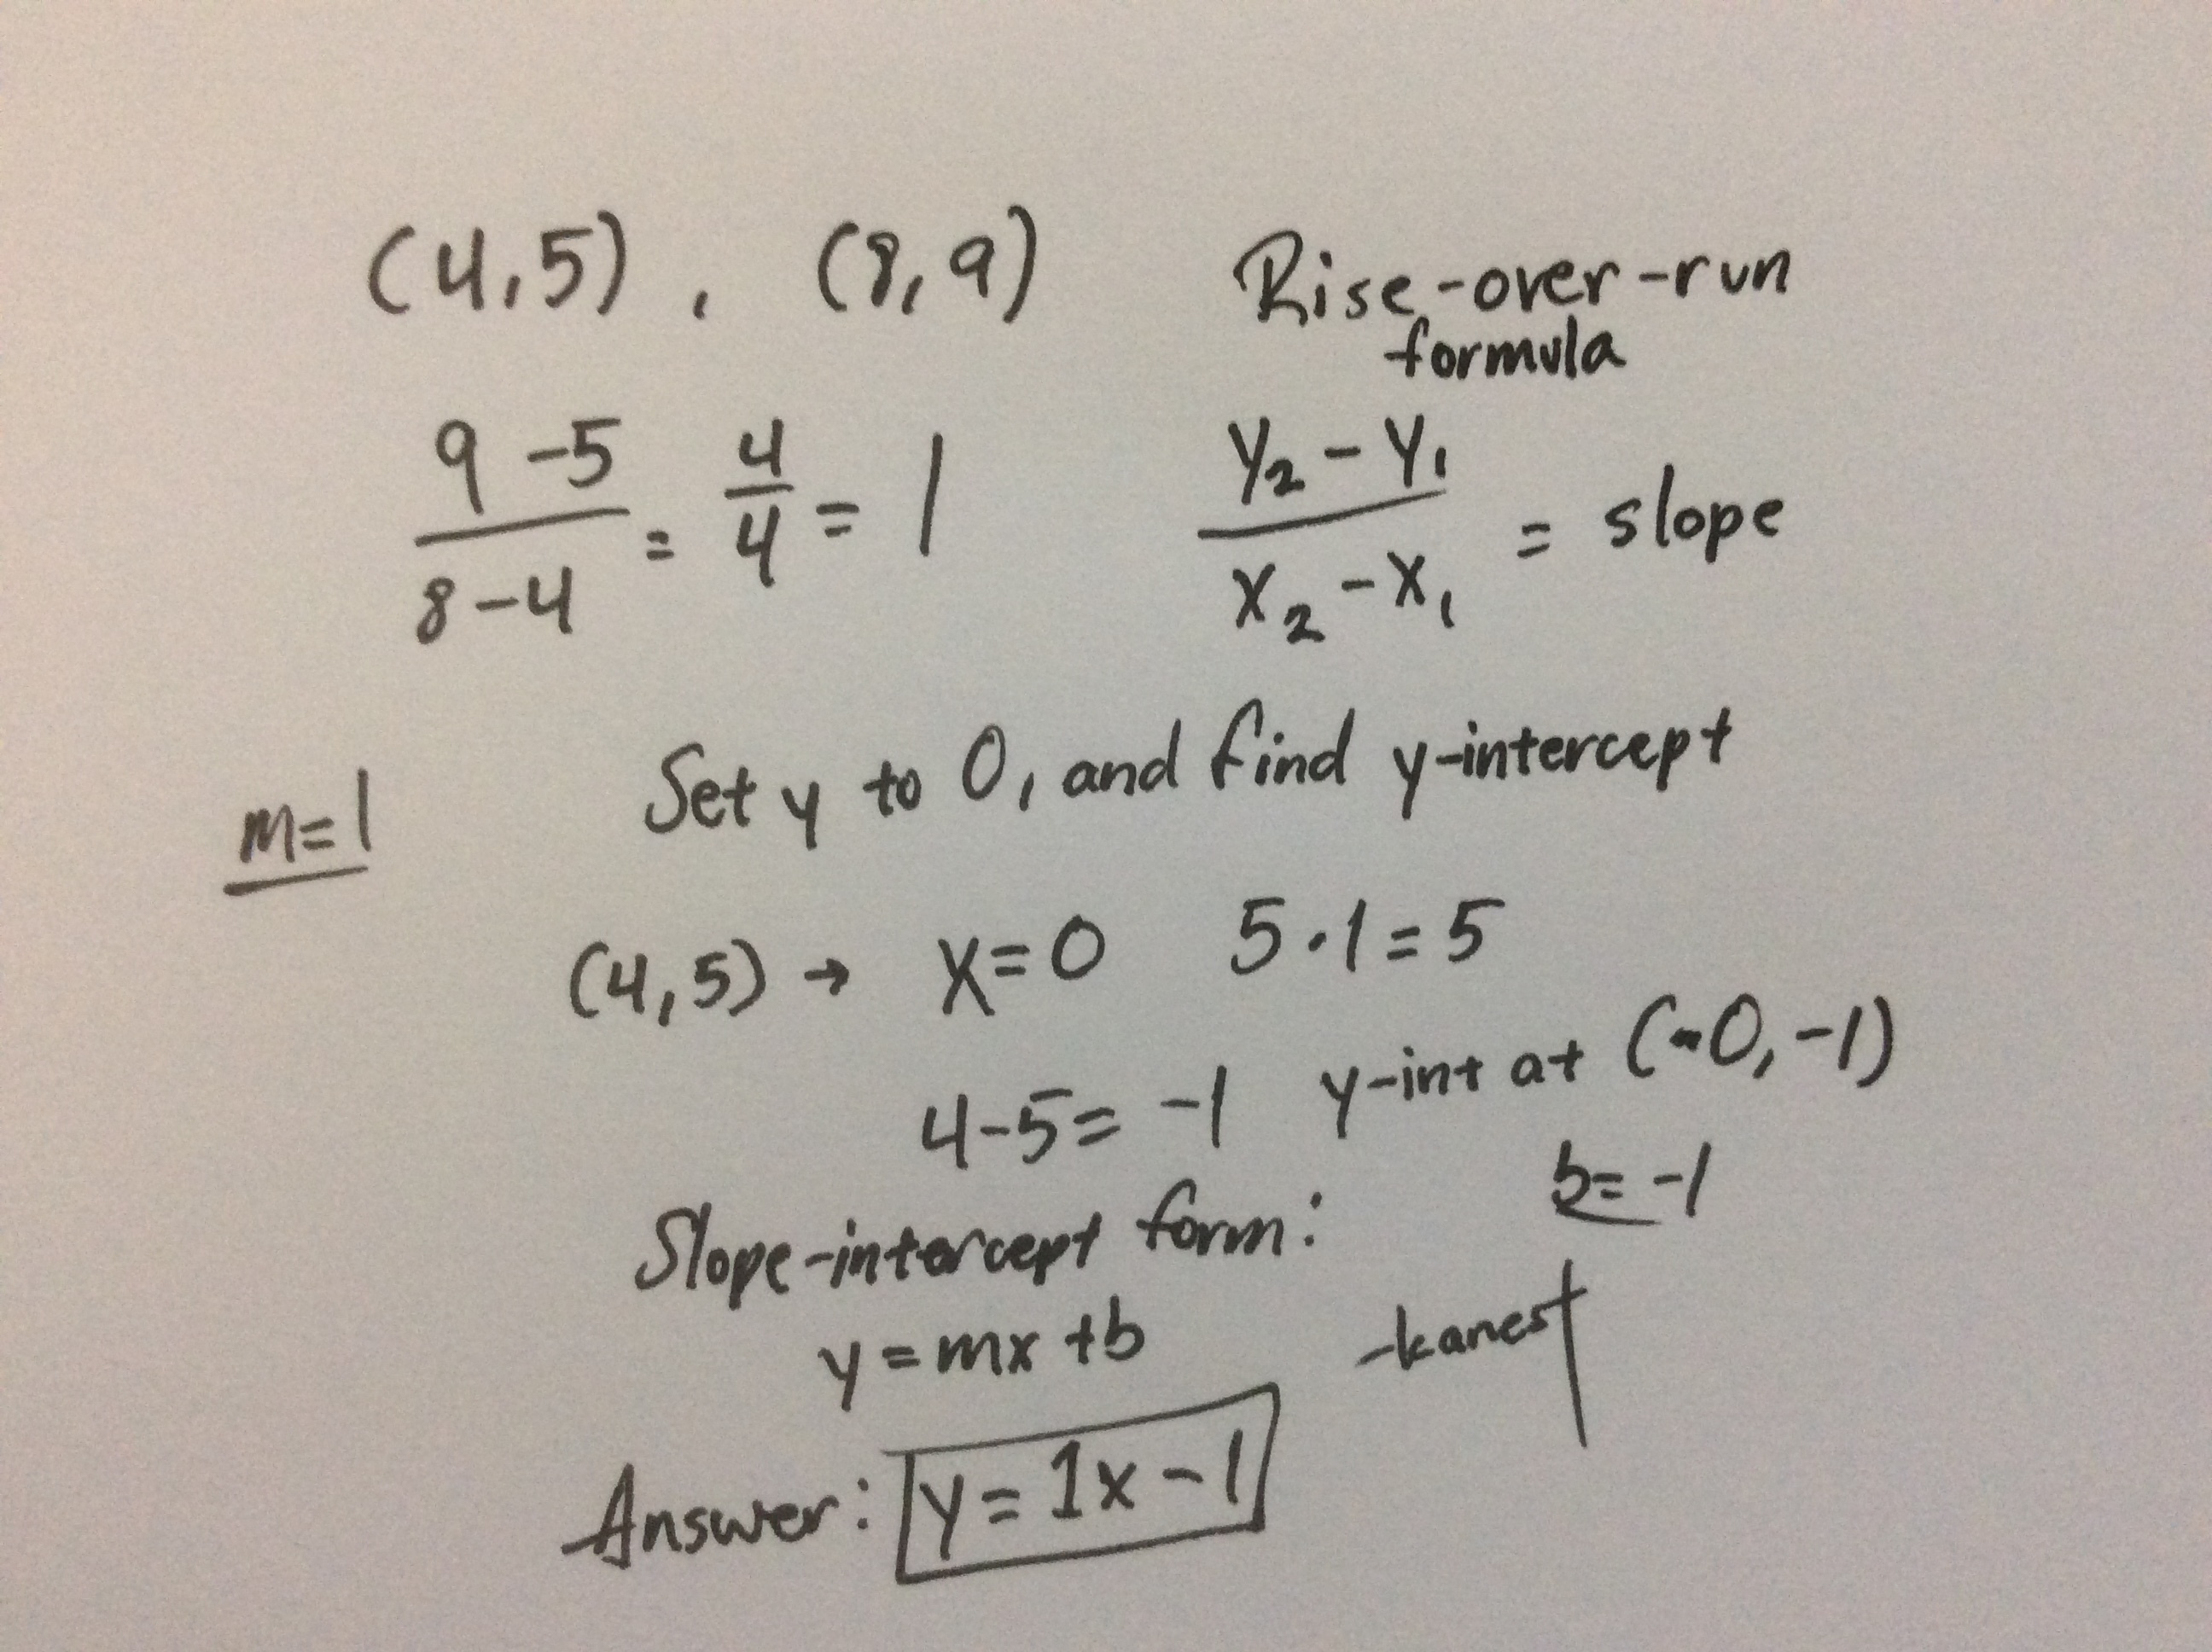 (4,5) , (8,9)
Rise-over-run
formula
9-5/8-4 = 4/4 = 1
y₂-y₁/x₂-x₁ = slope
m=1
Set y to 0, and find y-intercept
(4,5) → x=0 5·1=5
4-5= -1 y-int at (-0,-1)
b= -1
Slope-intercept form:
y=mx+b
-kanest
Answer: y=1x-1